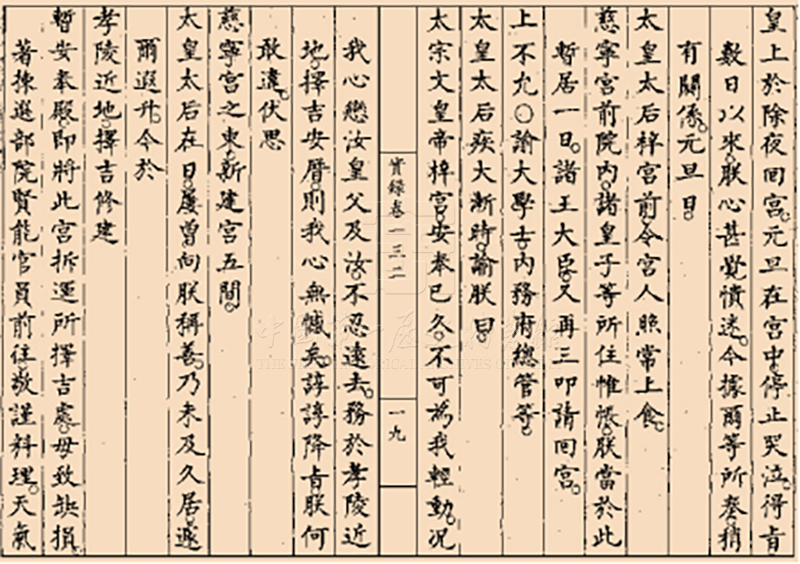 皇上於除夜回宮。元旦在宮中。停止哭泣。得旨。
數日以來。朕心甚覺憒迷。今據爾等所奏。稍
有關係。元旦日。
太皇太后梓宮前。令宮人照常上食。
慈寧宮前院內。諸皇子等所住帷帳。朕當於此
暫居一日。諸王大臣。又再三叩請回宮。
上不允○諭大學士。內務府總管等。
太皇太后疾大漸時。諭朕曰。
太宗文皇帝梓宮。安奉已久。不可為我輕動。況
實錄卷一三二
一九
我心戀汝皇父及汝。不忍遠去。務於孝陵近
地。擇吉安厝。則我心無憾矣。諄諄降旨。朕何
敢違。伏思
慈寧宮之東。新建宮五間。
太皇太后在日。屢曾向朕稱善。乃未及久居。遽
爾遐升。今於
孝陵近地。擇吉修建
暫安奉殿。即將此宮拆運所擇吉處。毋致缺損
著揀選部院賢能官員前往。敬謹料理。天氣